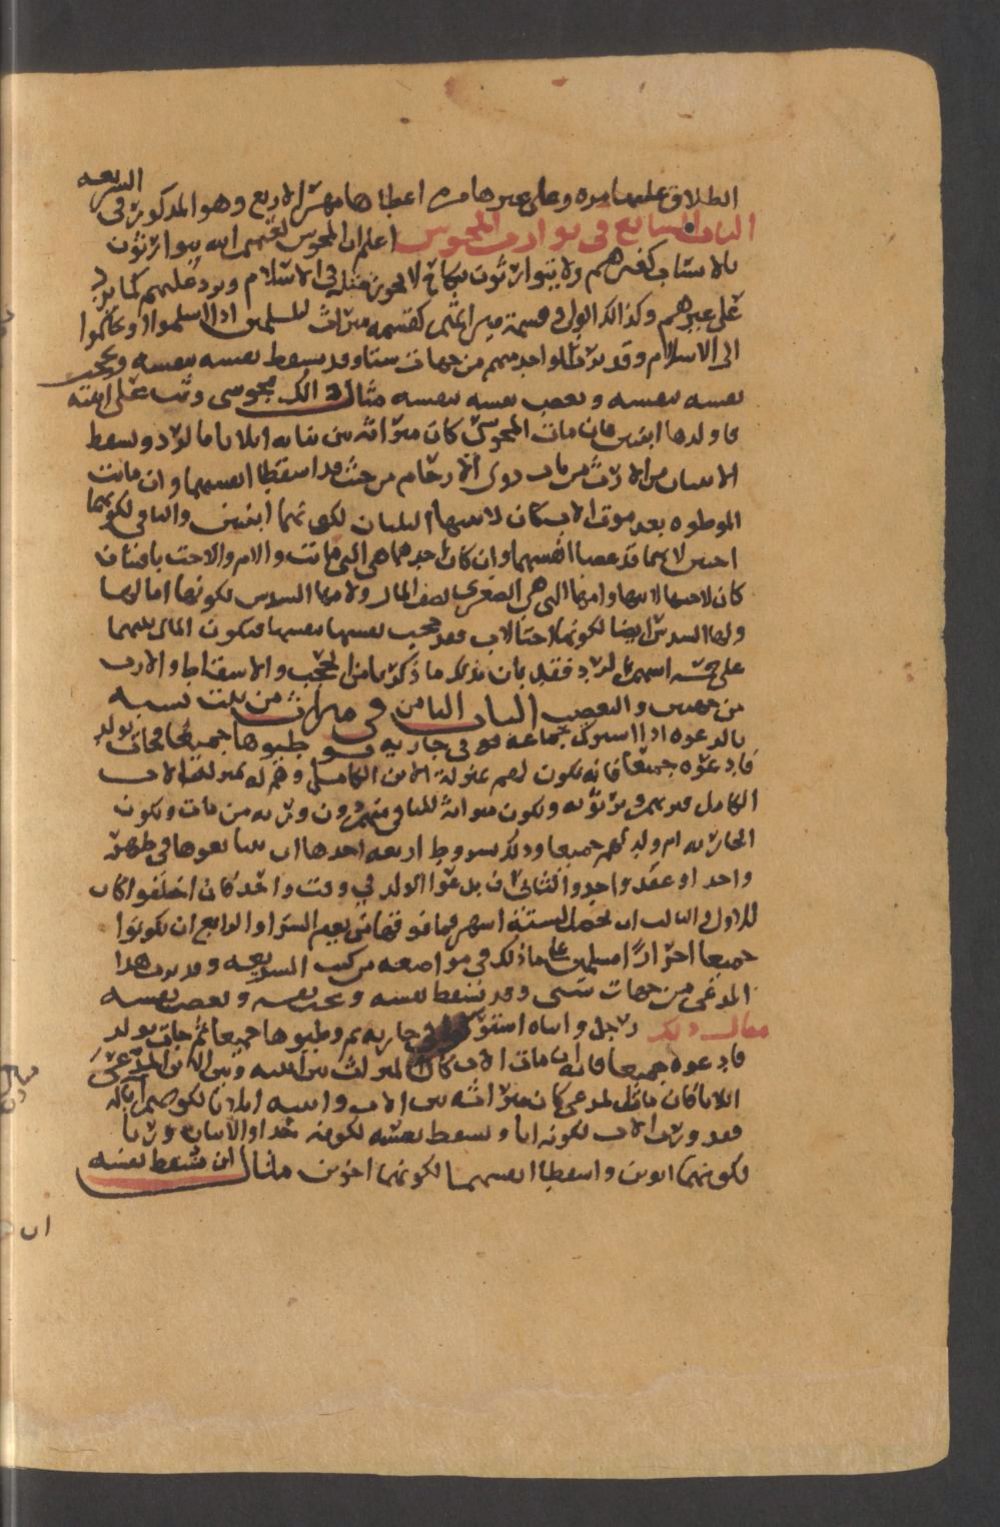 الشريعه
الطلاق عليها مره وعلى غيرها مره اعطاها مهر الاربع وهو المذكور في
الباب السابع في توارث المجوس اعلم ان المجوس لعنهم الله يتوارثون
بالانساب كغيرهم ولا يتوارثون بنكاح لا يجوز مثله في الاسلام ويرد عليهم كما يرد
على غيرهم وكذالك القول في قسمة ميراثهم كقسمه ميراث المسلمين اذا اسلموا او تحاكموا
الى الاسلام وقد يرث الواحد منهم من جهات شتا وقد يسقط نفسه بنفسه ويحجب
نفسه بنفسه ويعصب نفسه بنفسه مثال ذالك مجوسي وثب على ابنته
فاولدها ابنتين فان مات المجوسي كان ميراثه بين بناته اثلاثا بالرد وتسقط
الابنتان من الارث من باب ذوي الارحام من حيث قد اسقطا انفسهما وان ماتت
الموطوه بعد موت الاب كان لابنتيها الثلثان لكونهما ابنتين والباقي لكونهما
اختين لانهما قد عصبا انفسهما وان كان احدهما هي التي ماتت والام والاخت باقيتان
كان لاختها لابيها وامها التي هي الصغرى نصف المال ولامها السدس لكونها اما لها
ولها السدس ايضا لكونها اختا لاب فقد حجبت نفسها بنفسها فيكون المال بينهما
على خمسه اسهم بالرد فقد بان بذلك ما ذكرنا من الحجب والاسقاط والارث
من جهتين والتعصيب الباب الثامن في ميراث من يثبت نسبه
بالدعوه اذا اشترك جماعه في جاريه فوطيوها جميعا فجات بولد
فادعوه جميعا فانه يكون لهم بمنزلة الابن الكامل وهم له بمنزلة الاب
الكامل فيرثهم ويرثونه ويكون ميراثه للباقي منهم دون ورثه من مات وتكون
الجاريه ام ولد لهم جميعا وذلك بشروط اربعه احدها ان يتبايعوها في طهر
واحد او عقد واحد والثاني ان يدعوا الولد في وقت واحد فان اختلفوا كان
للاول والثالث ان تحمل لستة اشهر فما فوقها من يوم الشرا والرابع ان يكونوا
جميعا احرارا مسلمين على ما ذلك في مواضعه من كتب الشريعه وقد يرث هذا
المدعى من جهات شتى وقد يسقط نفسه ويحجب نفسه ويعصب نفسه
مثال ذلك رجل واباه اشتركا في جاريه ثم وطيوها جميعا ثم جات بولد
فادعوه جميعا فانه ان مات الاب كان الميراث بين ابنه وبين الابن المدعى
اثلاثا فان مات المدعى كان ميراثه بين الاب وابنه اثلاثا لكونهم آبا له
فقد ورث الاب لكونه ابا ويسقط نفسه لكونه جدا والابنان ورثا
لكونهما ابوين واسقطا انفسهما لكونهما اخوين مثال ابن يسقط نفسه